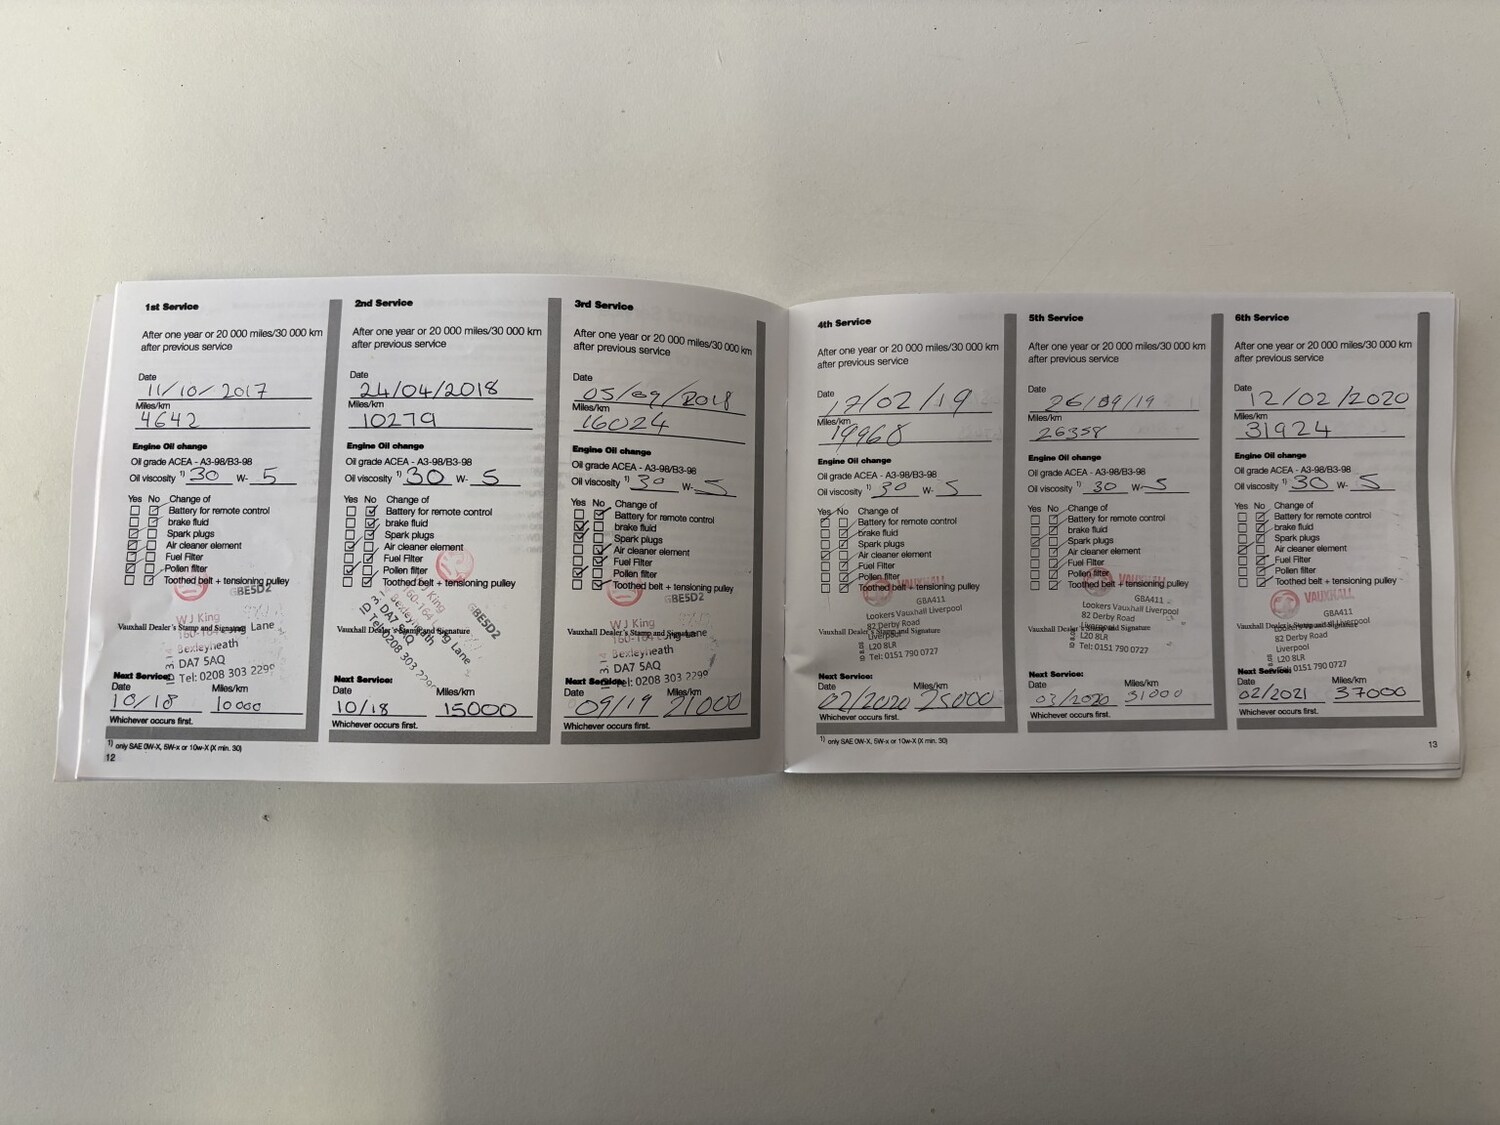 1st Service
After one year or 20 000 miles/30 000 km
after previous service
Date
11/10/2017
Miles/km
4642
Engine Oil change
Oil grade ACEA - A3-98/B3-98
Oil viscosity 1) 30 W- 5
Yes No Change of
Battery for remote control
brake fluid
Spark plugs
Air cleaner element
Fuel Filter
Pollen filter
Toothed belt + tensioning pulley
GBE5D2
W J King
Lane
Vauxhall Dealer's Stamp and Signature
Bexleyheath
DA7 5AQ
Tel: 0208 303 2299
Next Service:
Date Miles/km
10/18 10000
Whichever occurs first.
1) only SAE 0W-X, 5W-x or 10w-X (X min. 30)
12
2nd Service
After one year or 20 000 miles/30 000 km
after previous service
Date
24/04/2018
Miles/km
10279
Engine Oil change
Oil grade ACEA - A3-98/B3-98
Oil viscosity 1) 30 W- 5
Yes No Change of
Battery for remote control
brake fluid
Spark plugs
Air cleaner element
Fuel Filter
Pollen filter
Toothed belt + tensioning pulley
GBE5D2
King
Lane
Vauxhall Dealer's Stamp and Signature
Bexleyheath
DA7 5AQ
Tel: 0208 303
Next Service:
Date Miles/km
10/18 15000
Whichever occurs first.
3rd Service
After one year or 20 000 miles/30 000 km
after previous service
Date
05/09/2018
Miles/km
16024
Engine Oil change
Oil grade ACEA - A3-98/B3-98
Oil viscosity 1) 30 W- 5
Yes No Change of
Battery for remote control
brake fluid
Spark plugs
Air cleaner element
Fuel Filter
Pollen filter
Toothed belt + tensioning pulley
GBE5D2
W J King
Lane
Vauxhall Dealer's Stamp and Signature
Bexleyheath
DA7 5AQ
Tel: 0208 303 2299
Next Service:
Date Miles/km
09/19 21000
Whichever occurs first.
4th Service
After one year or 20 000 miles/30 000 km
after previous service
Date
17/02/19
Miles/km
19968
Engine Oil change
Oil grade ACEA - A3-98/B3-98
Oil viscosity 1) 30 W- 5
Yes No Change of
Battery for remote control
brake fluid
Spark plugs
Air cleaner element
Fuel Filter
Pollen filter
Toothed belt + tensioning pulley
VAUXHALL
GBA411
Lookers Vauxhall Liverpool
82 Derby Road
Vauxhall Dealer's Stamp and Signature
Liverpool
L20 8LR
Tel: 0151 790 0727
Next Service:
Date Miles/km
02/2020 25000
Whichever occurs first.
1) only SAE 0W-X, 5W-x or 10w-X (X min. 30)
5th Service
After one year or 20 000 miles/30 000 km
after previous service
Date
26/09/19
Miles/km
26358
Engine Oil change
Oil grade ACEA - A3-98/B3-98
Oil viscosity 1) 30 W- 5
Yes No Change of
Battery for remote control
brake fluid
Spark plugs
Air cleaner element
Fuel Filter
Pollen filter
Toothed belt + tensioning pulley
VAUXHALL
GBA411
Lookers Vauxhall Liverpool
82 Derby Road
Vauxhall Dealer's Stamp and Signature
Liverpool
L20 8LR
Tel: 0151 790 0727
Next Service:
Date Miles/km
03/2020 31000
Whichever occurs first.
6th Service
After one year or 20 000 miles/30 000 km
after previous service
Date
12/02/2020
Miles/km
31924
Engine Oil change
Oil grade ACEA - A3-98/B3-98
Oil viscosity 1) 30 W- 5
Yes No Change of
Battery for remote control
brake fluid
Spark plugs
Air cleaner element
Fuel Filter
Pollen filter
Toothed belt + tensioning pulley
VAUXHALL
GBA411
Lookers Vauxhall Liverpool
Vauxhall Dealer's Stamp and Signature
82 Derby Road
Liverpool
L20 8LR
Tel: 0151 790 0727
Next Service:
Date Miles/km
02/2021 37000
Whichever occurs first.
13